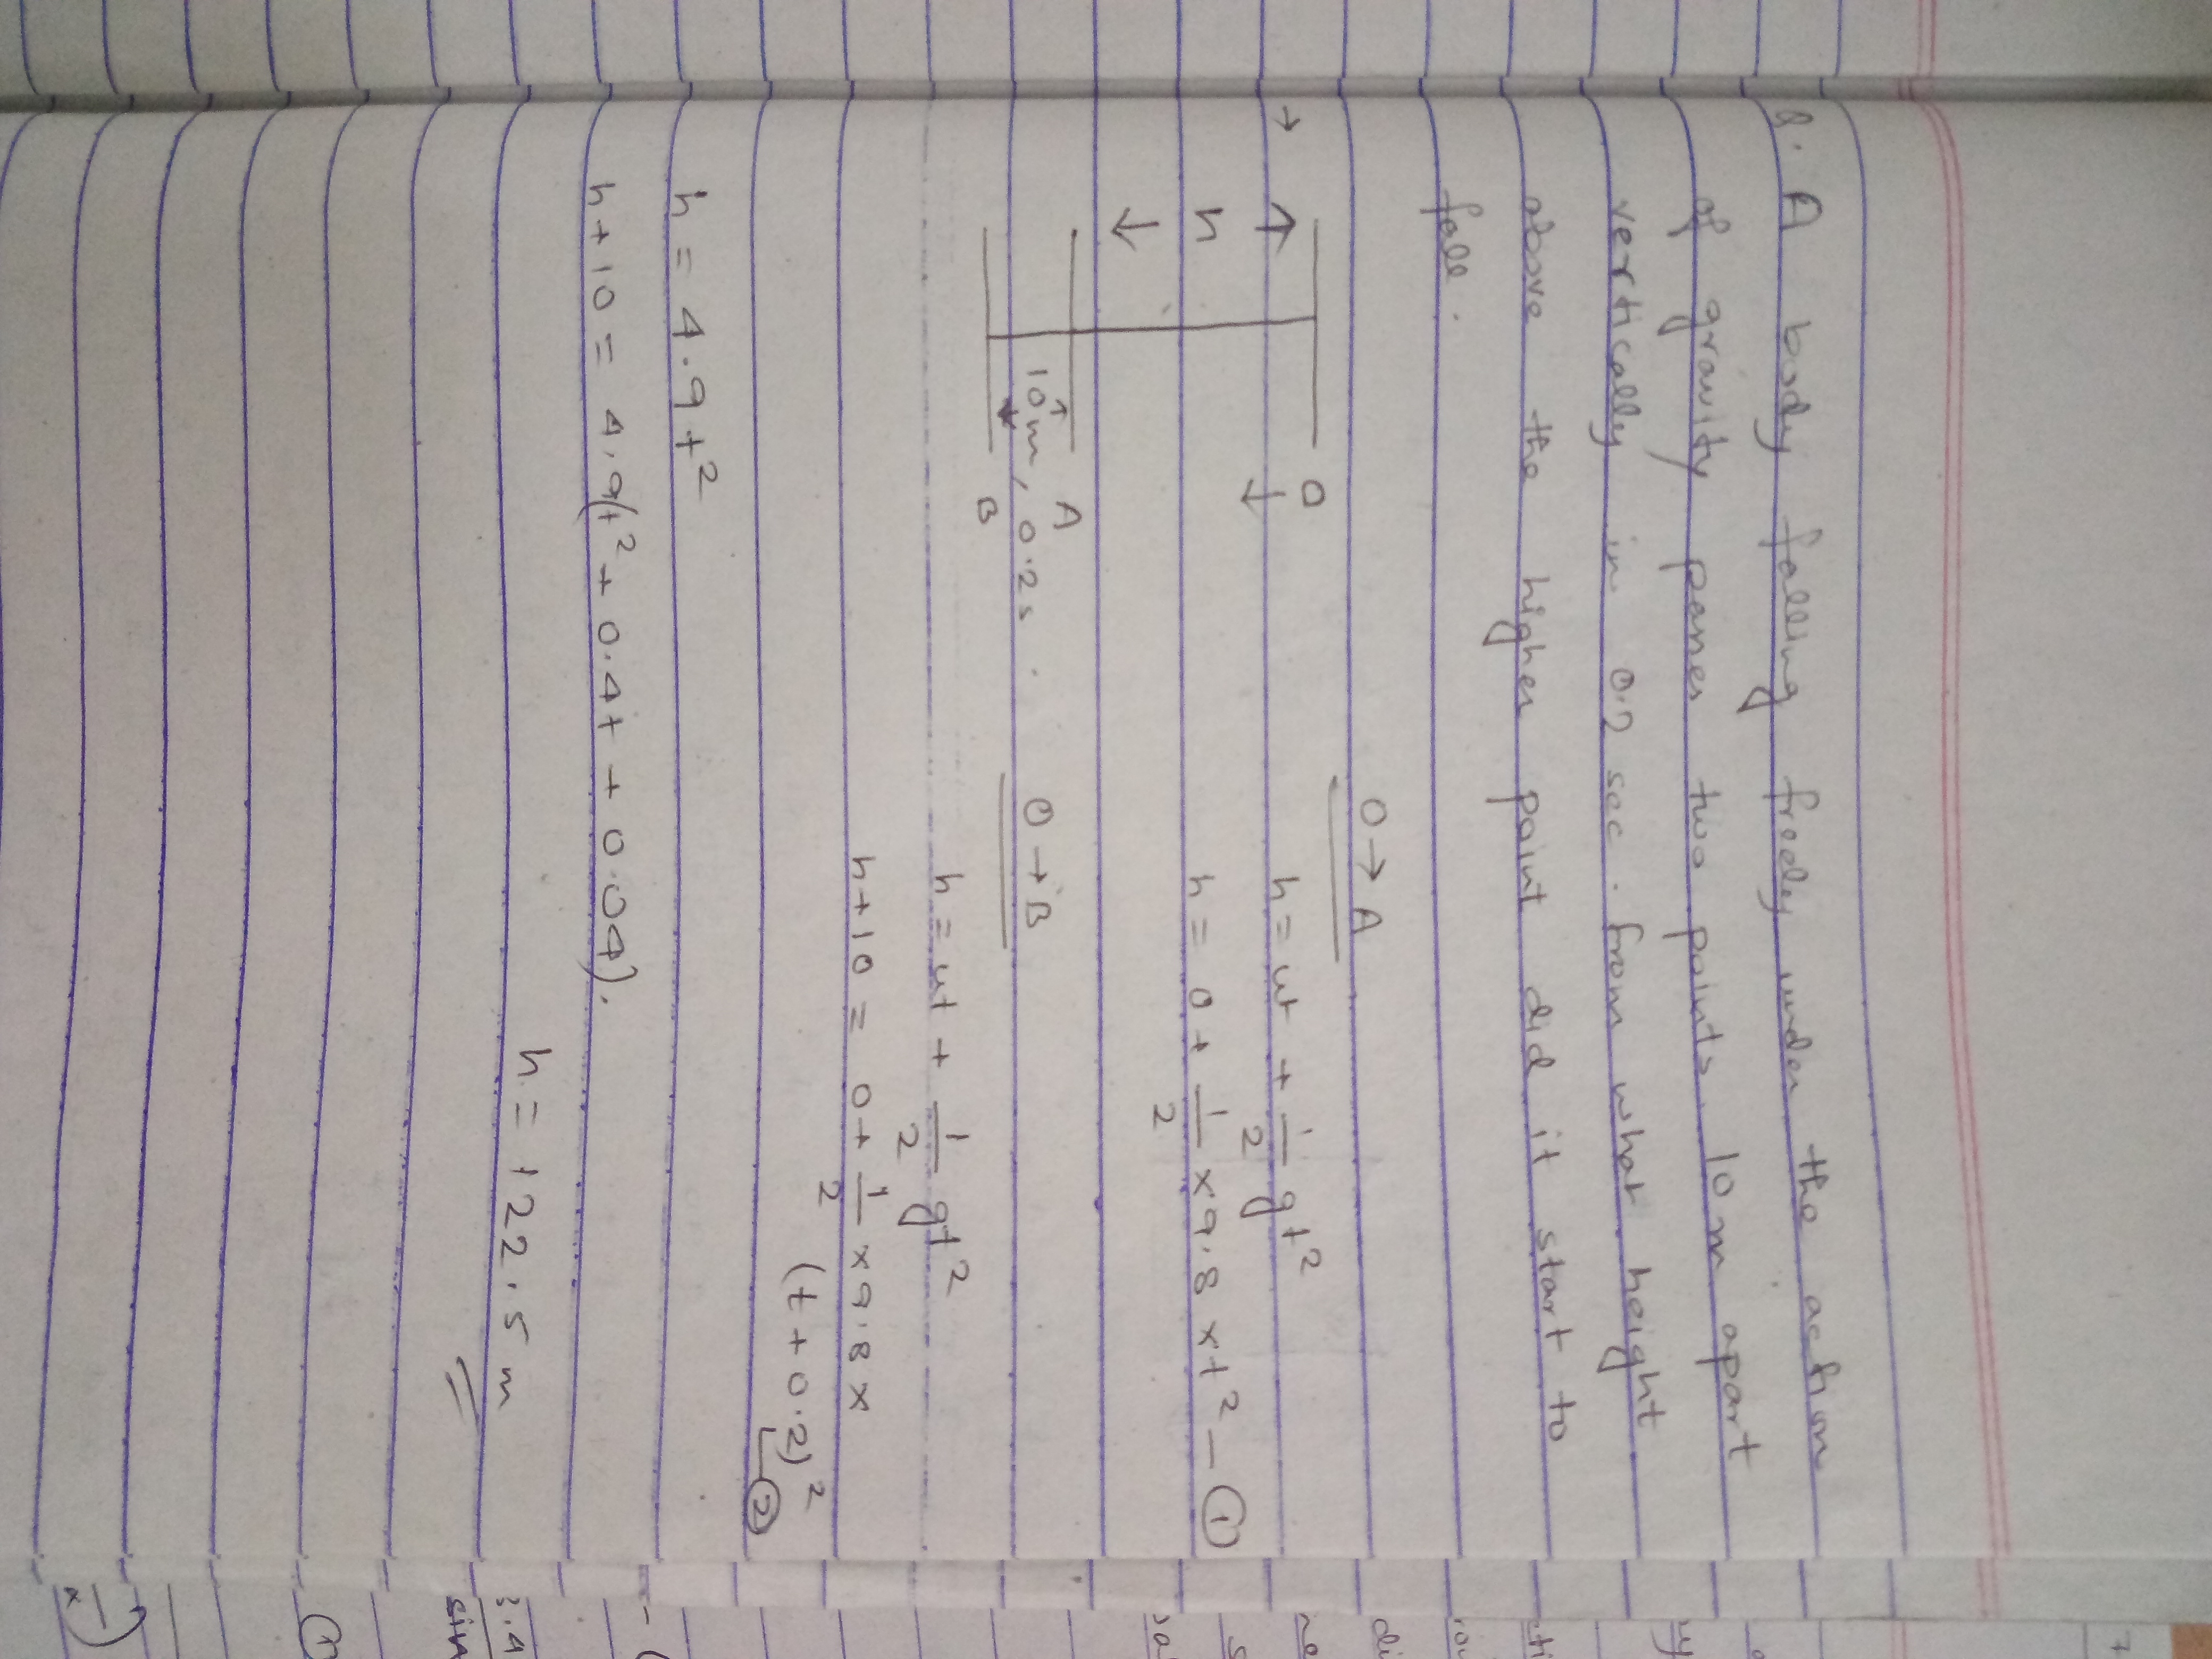 Q. A body falling freely under the action
of gravity passes two points 10 m apart
vertically in 0.2 sec. from what height
above the higher point did it start to
fall.
O → A
→ O
h = ut + 1/2 gt²
h
h = 0 + 1/2 × 9.8 × t² — ①
A
10m, 0.2s
O → B
B
h = ut + 1/2 gt²
h + 10 = 0 + 1/2 × 9.8 ×
(t + 0.2)²
②
h = 4.9t²
h + 10 = 4.9(t² + 0.4t + 0.04).
h = 122.5 m